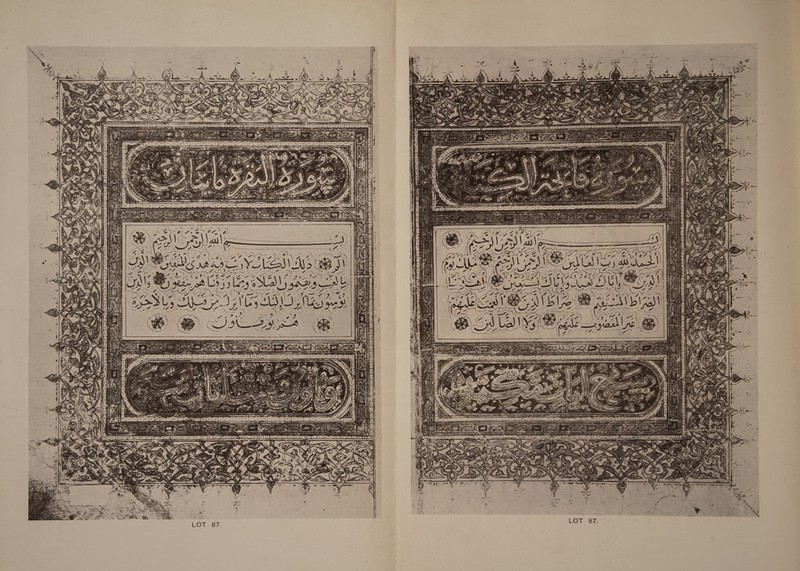 سورة فاتحة الكتاب
بسم الله الرحمن الرحيم
الحمد لله رب العالمين الرحمن الرحيم ملك يوم
الدين اياك نعبد واياك نستعين اهدنا
الصراط المستقيم صراط الذين انعمت عليهم
غير المغضوب عليهم ولا الضالين
سبع ايات
LOT 87.
سورة البقرة مايتان
بسم الله الرحمن الرحيم
الم ذلك الكتاب لا ريب فيه هدى للمتقين الذين
بالغيب ويقيمون الصلاة ومما رزقناهم ينفقون والذين
يؤمنون بما انزل اليك وما انزل من قبلك وبالاخرة
هم يوقنون
LOT 87.